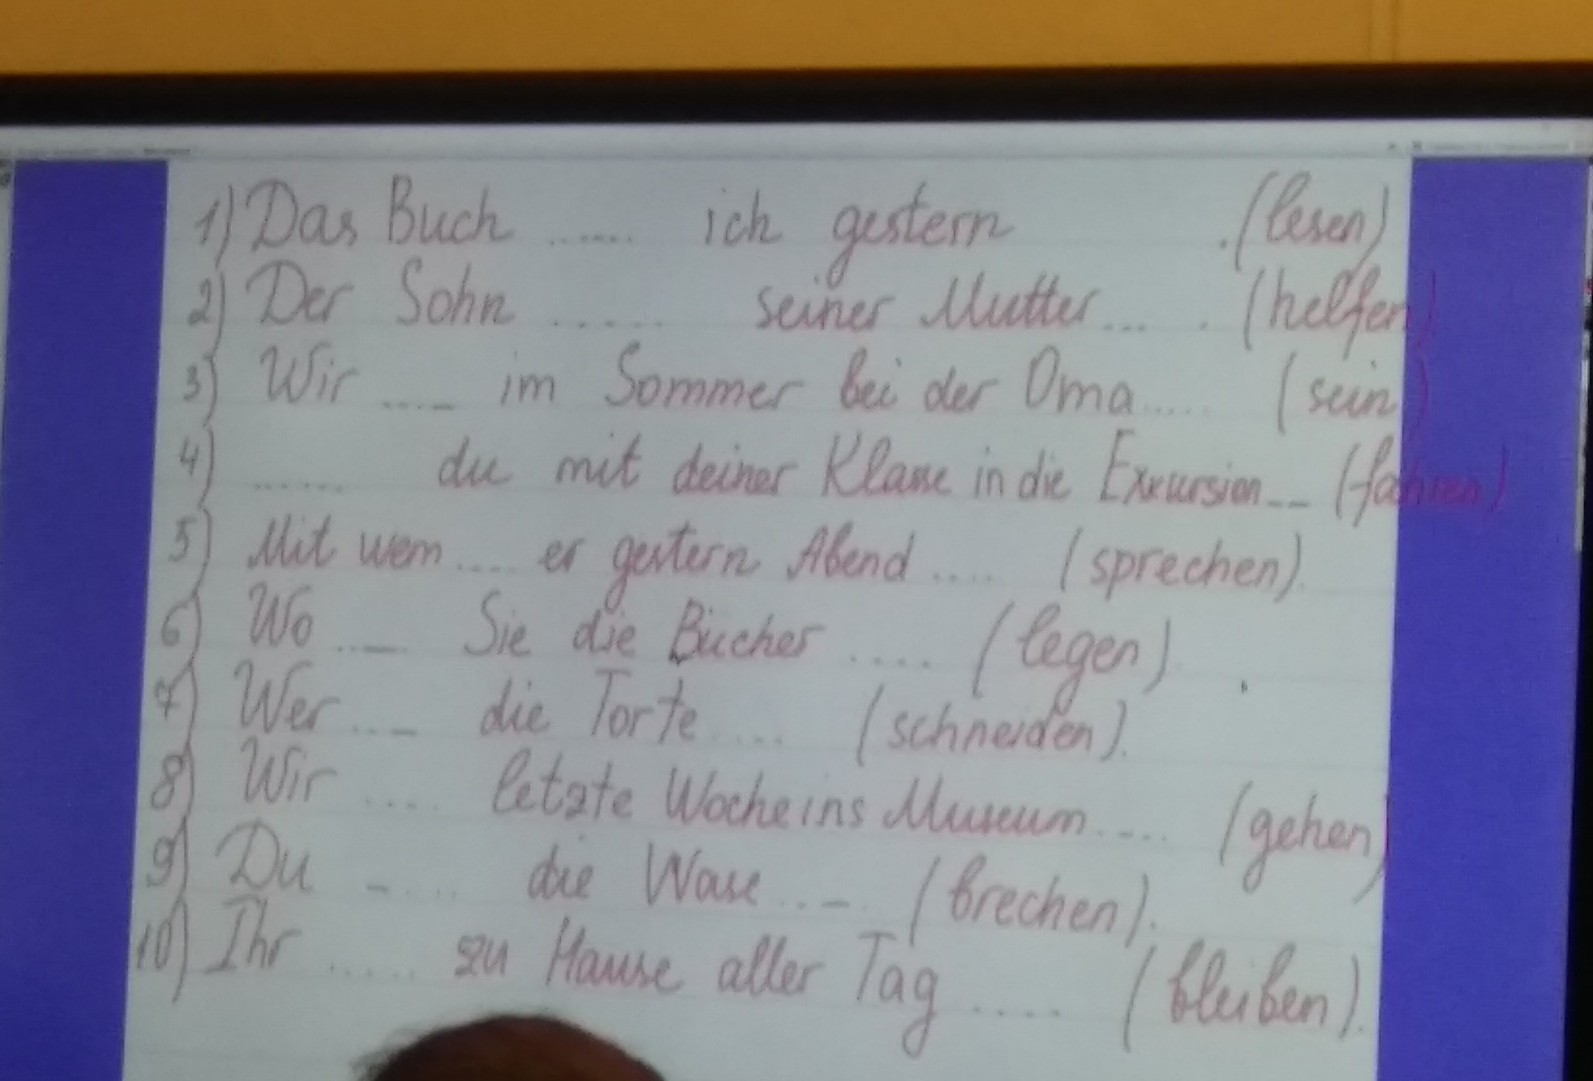 1) Das Buch ...... ich gestern .(lesen)
2) Der Sohn ...... seiner Mutter... . (helfen)
3) Wir .... im Sommer bei der Oma..... (sein)
4) ...... du mit deiner Klasse in die Exkursion... (fahren)
5) Mit wem .... er gestern Abend .... (sprechen).
6) Wo .... Sie die Bücher .... (legen)
7) Wer .... die Torte .... (schneiden).
8) Wir .... letzte Woche ins Museum .... (gehen)
9) Du .... die Wase ... (brechen).
10) Ihr ..... zu Hause aller Tag ..... (bleiben).